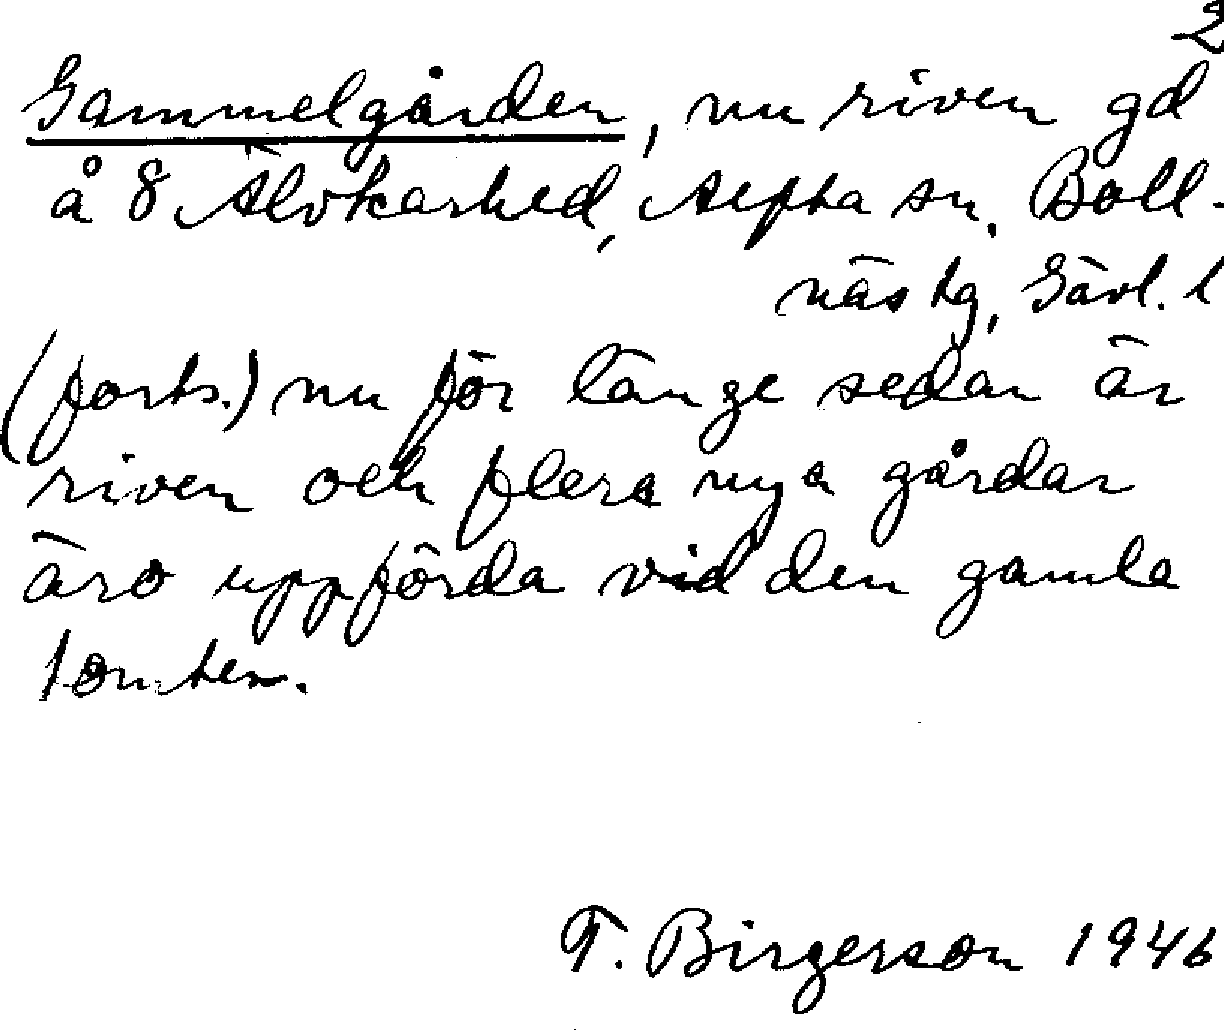 2
Gammelgården, nu riven gd
å 8 Älvkarhed, Alfta sn, Boll-
näs tg, Gävl. l
(forts.) nu för länge sedan är
riven och flera nya gårdar
äro uppförda vid den gamla
tomten.
T. Birgerson 1946